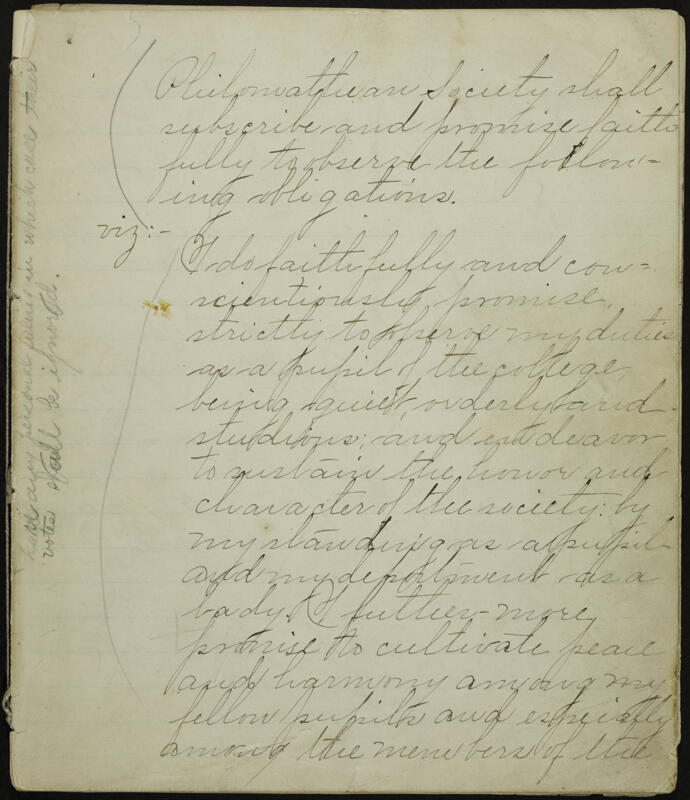 Philomathean Society shall
subscribe and promise faith-
fully to observe the follow-
ing obligations.
viz:-
I do faithfully and con-
scientiously promise,
strictly to observe my duties
as a pupil of the college,
being quiet, orderly and
studious; and endeavor
to sustain the honor and
character of the society: by
my standing as a pupil
and my deportment as a
lady. I further-more
promise to cultivate peace
and harmony among my
fellow pupils and especially
among the members of the
any personal in which case their
votes shall be ignored.